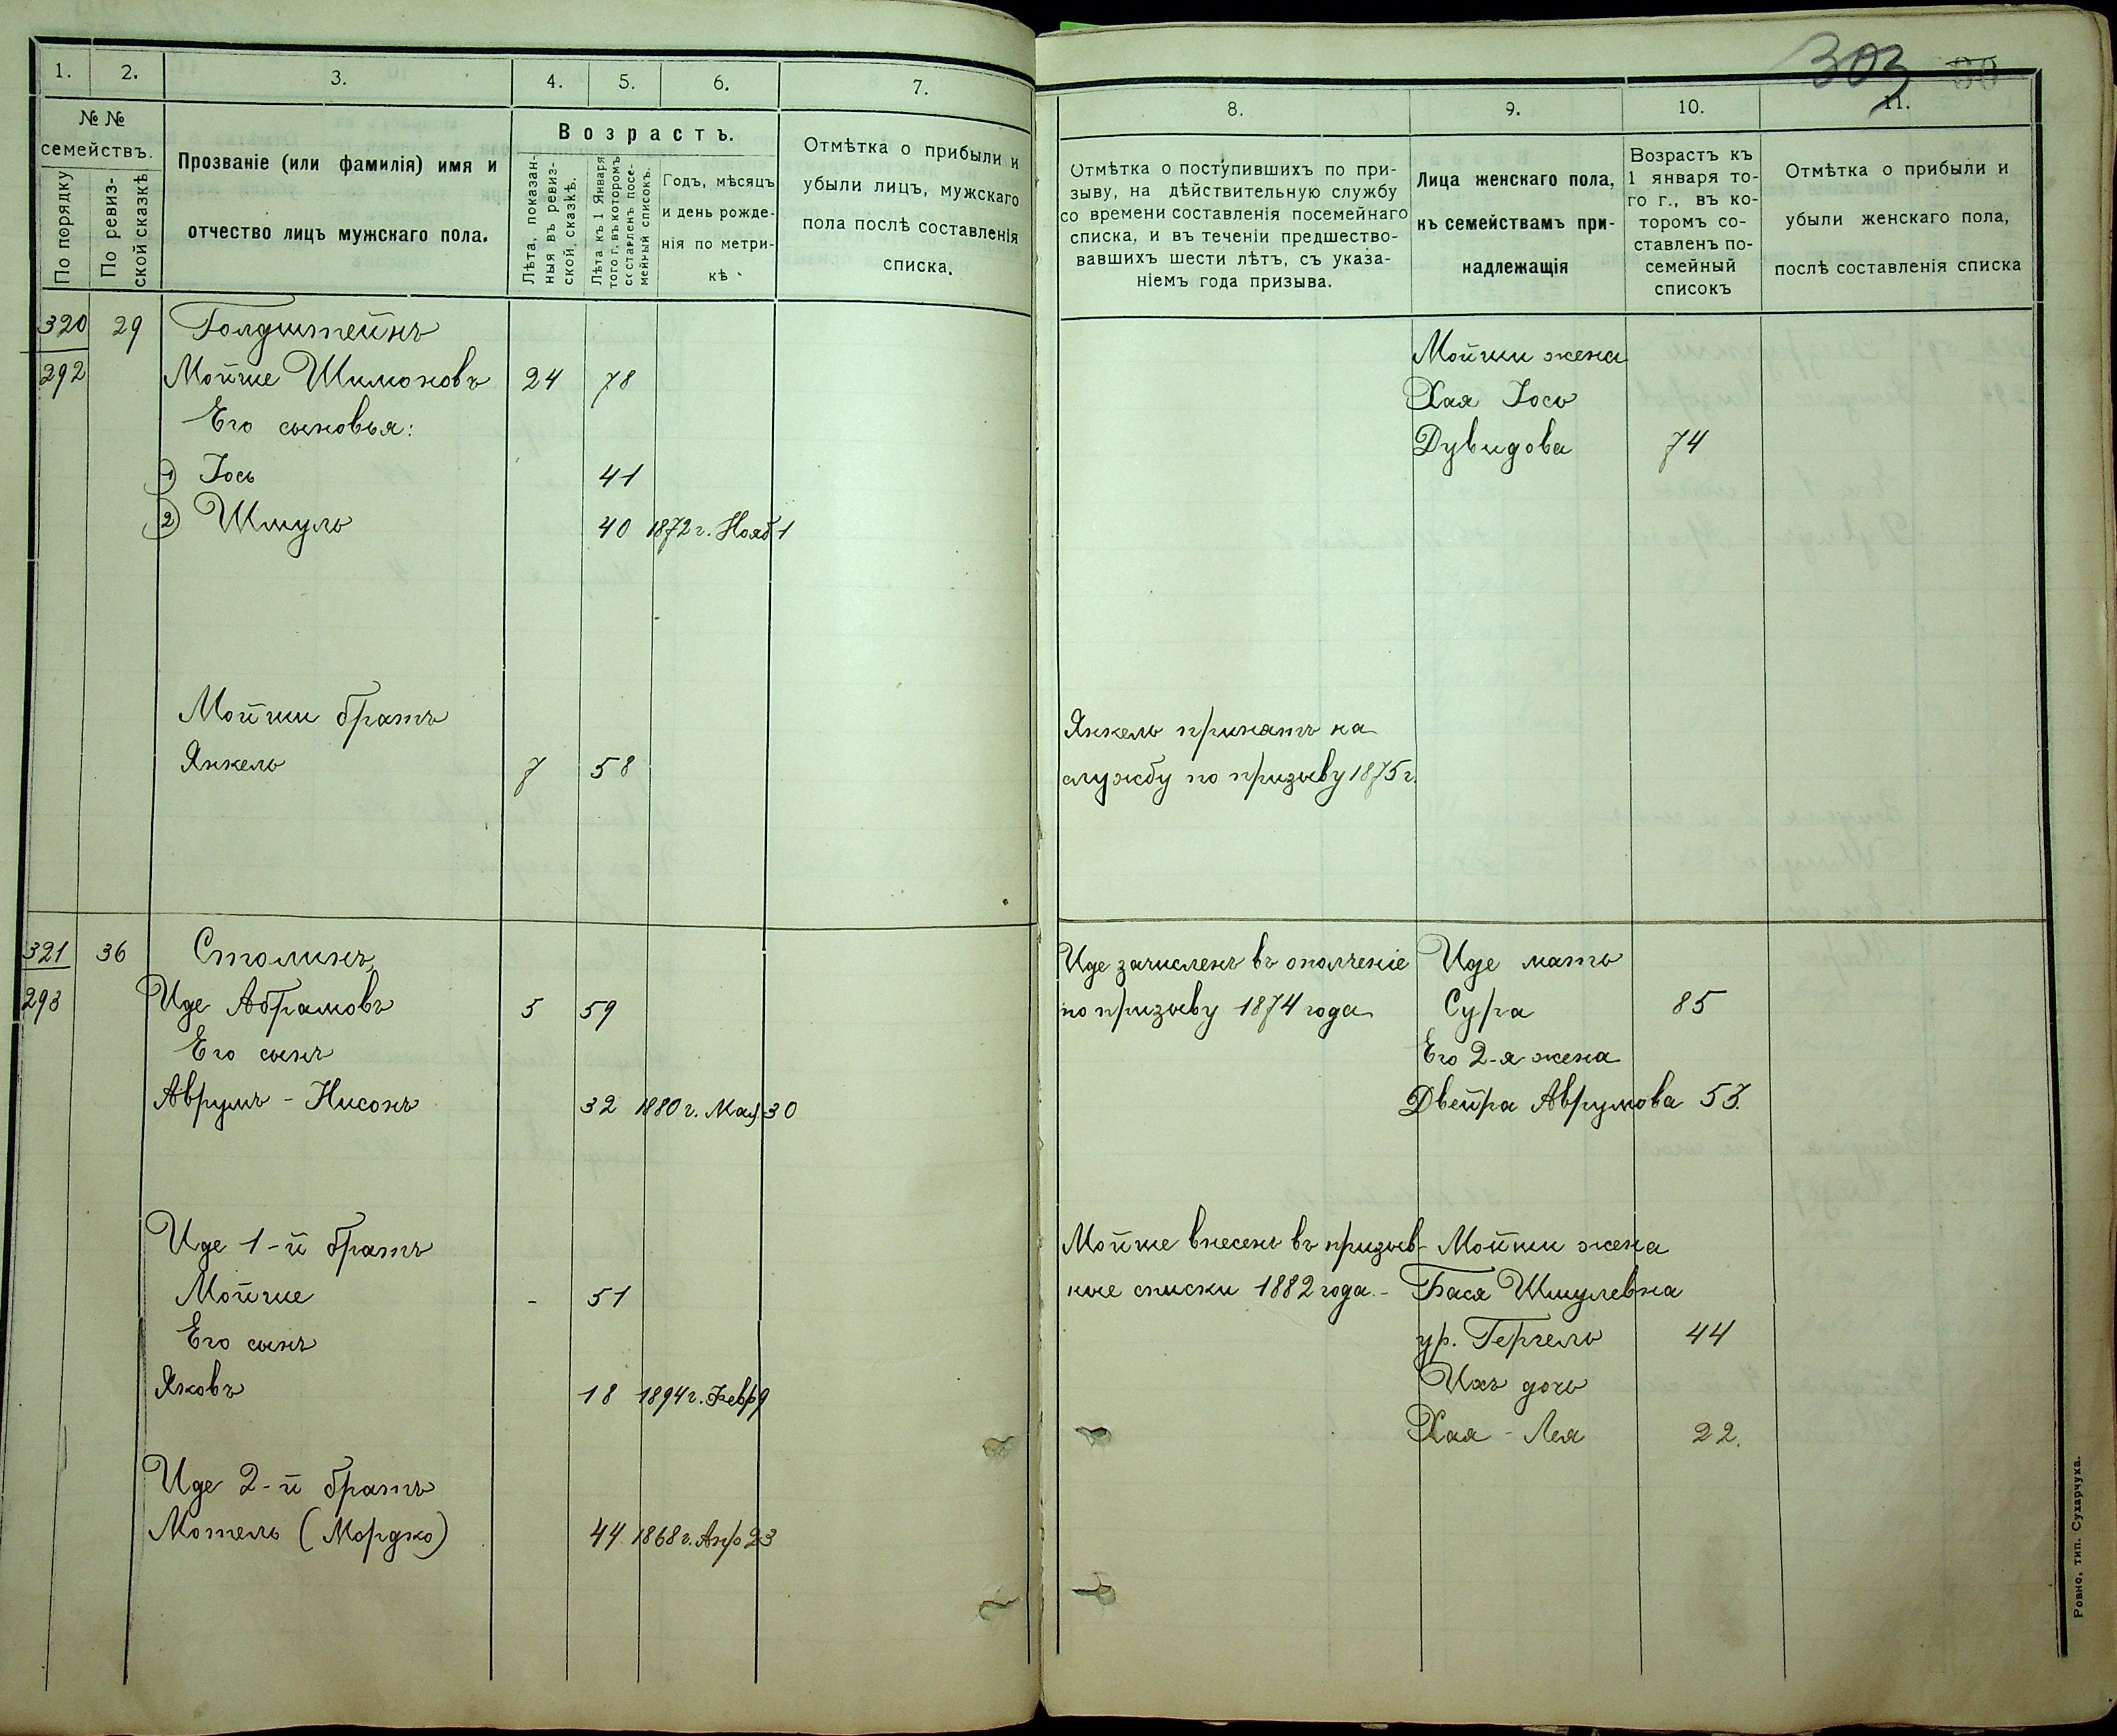 1. 2. 3. 4. 5. 6. 7.
№ №
семействъ.
По порядку
По ревиз-
ской сказкѣ
Прозваніе (или фамилія) имя и
отчество лицъ мужскаго пола.
Возрастъ.
Лѣта, показан-
ныя въ ревиз-
ской сказкѣ.
Лѣта къ 1 Января
того г. въ которомъ
составленъ посе-
мейный списокъ.
Годъ, мѣсяцъ
и день рожде-
нія по метри-
кѣ
Отмѣтка о прибыли и
убыли лицъ, мужскаго
пола послѣ составленія
списка.
320 29 Голдштейнъ
292 Мойше Шимоновъ 24 78
Его сыновья:
1) Іось 41
2) Шмуль 40 1872 г. Нояб 1
Мойши братъ
Янкель 7 58
321 36 Столинъ,
293 Иде Абрамовъ 5 59
Его сынъ
Аврумъ - Нисонъ 32 1880 г. Мая 30
Иде 1-й братъ
Мойше - 51
Его сынъ
Яковъ 18 1894 г. Февр 9
Иде 2-й братъ
Мотель (Мордко) 44 1868 г. Апр 23
303
8. 9. 10. 11.
Отмѣтка о поступившихъ по при-
зыву, на дѣйствительную службу
со времени составленія посемейнаго
списка, и въ теченіи предшество-
вавшихъ шести лѣтъ, съ указа-
ніемъ года призыва.
Лица женскаго пола,
къ семействамъ при-
надлежащія
Возрастъ къ
1 января то-
го г., въ ко-
торомъ со-
ставленъ по-
семейный
списокъ
Отмѣтка о прибыли и
убыли женскаго пола,
послѣ составленія списка
Мойши жена
Хая Іось
Дувидова 74
Янкель принятъ на
службу по призыву 1875 г.
Иде зачисленъ въ ополченіе Иде мать
по призыву 1874 года Сура 85
Его 2-я жена
Двейра Аврумова 53.
Мойше внесенъ въ призыв- Мойши жена
ные списки 1882 года. - Бася Шмулевна
ур. Гергель 44
Ихъ дочь
Хая - Лея 22.
Ровно, тип. Сухарчука.